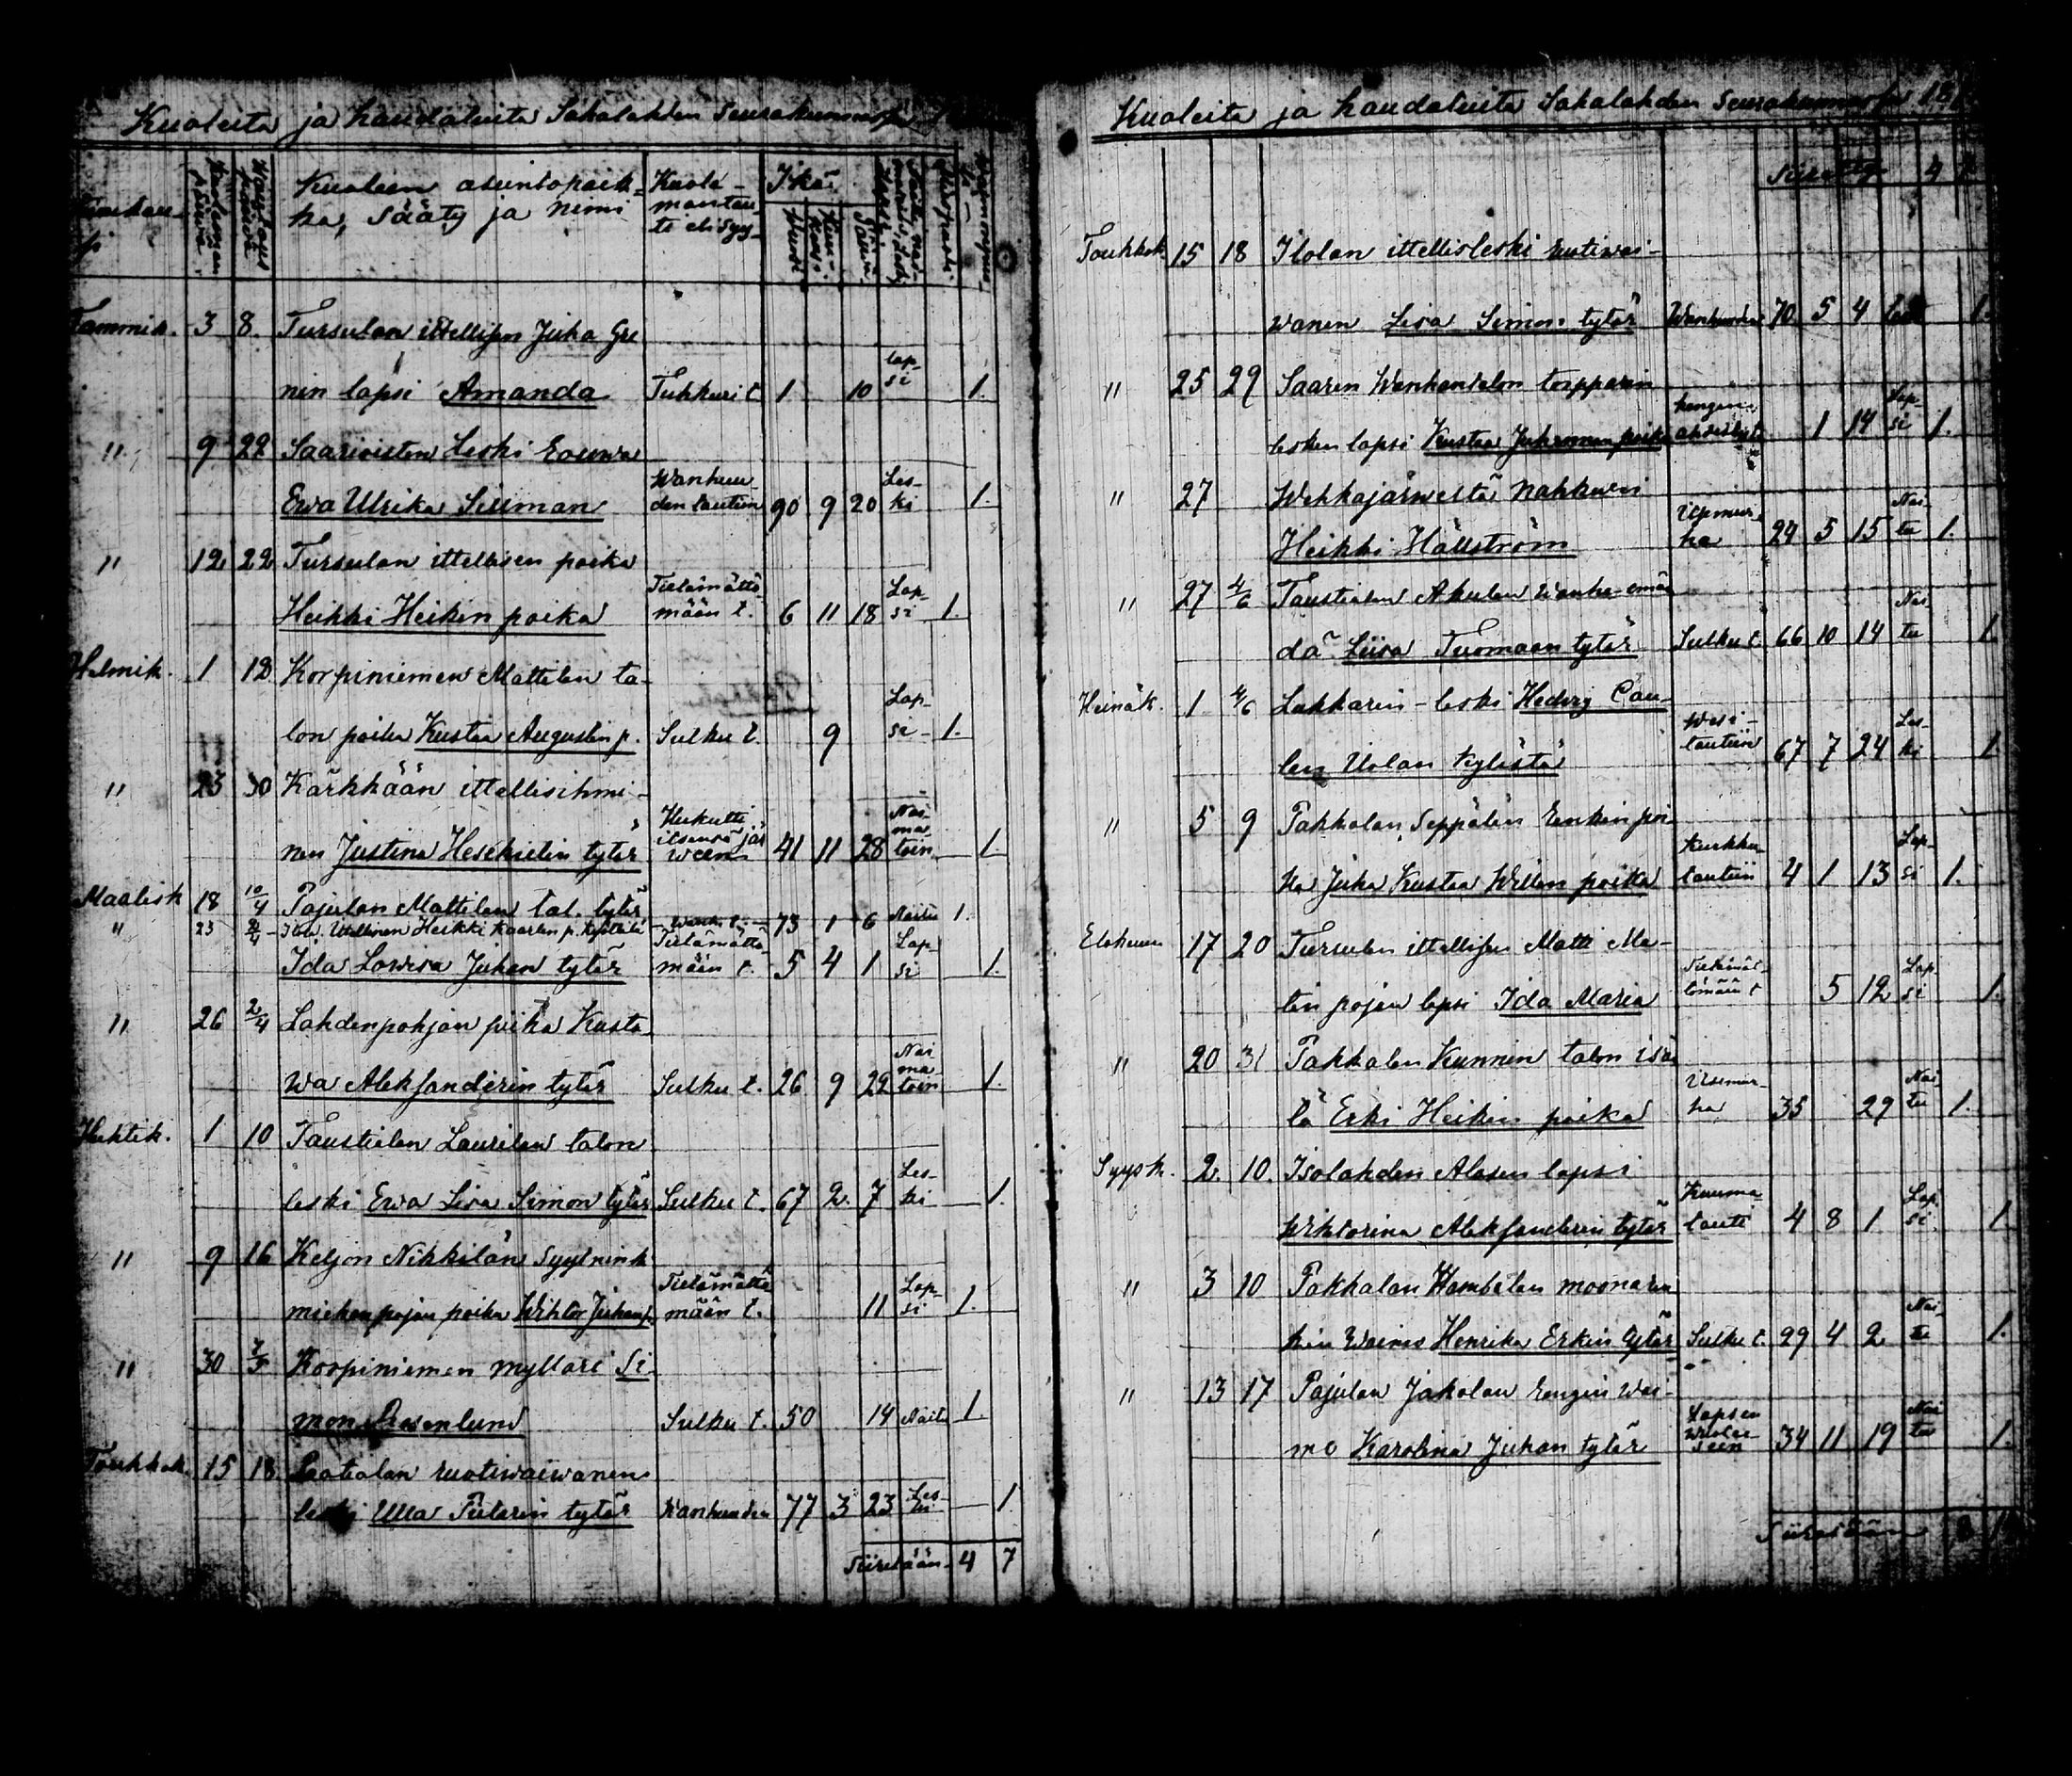 Kuoleita ja haudatuita Sahalahden Seurakunnassa
Kuukausi Kuoleman päivä Hautaus päivä Kuoleen asuntopaikka, Sääty ja nimi Kuolemantauti eli syy Ikä
Tammik. 3 8. Tursulan ittellisen Juha Gre
nin lapsi Amanda Tuhkuri t. 1 10 lapsi 1.
" 9 22 Saarioisten Leski Rouwa
Ewa Ulrika Sillman Wanhuuden tautiin 90 9 20 Leski 1.
" 12 22 Tursulan ittellisen poika
Heikki Heikin poika Tietämättömään t. 6 11 18 Lapsi 1.
Helmik. 1 12 Korpiniemen Mattilan ta-
lon poika Kustaa Augustin p. Sulku t. 9 Lapsi 1.
" 23 30 Kärkkään ittellisihmi-
nen Justina Hesekielin tytär Hukutti itsensä järween 41 11 28 Naimatoin 1.
Maalisk 18 10/4 Pajulan Mattilan tal. tytär
" 23 2/4 Ittellinen Heikki Kaarlen p. Wanh. t. 73 1 6 Naitu 1.
Ida Lowisa Juhan tytär Tietämättömään t. 5 4 1 Lapsi 1.
" 26 2/4 Lahdenpohjan piika Kusta
wa Aleksanderin tytär Sulku t. 26 9 29 Naimatoin 1.
Huhtik. 1 10 Taustialan Laurilan talon
leski Ewa Lisa Simon tytär Sulku t. 67 2. 7 Leski 1.
" 9 16 Keljon Nikkilän Syytnink
miehen pojan poika Wiktor Juhan p. Tietämättömään t. 11 Lapsi 1.
" 30 7/5 Korpiniemen myllari Si-
mon Rosenlund Sulku t. 50 14 Naitu 1.
Toukkok. 15 18 ruotiwaiwanen
leski Ulla Pietarin tytär Wanhuuden 77 3 23 Leski 1.
Siiretään 4 7
Kuoleita ja haudatuita Sahalahden Seurakunnassa 18
Siiretty 4 7
Toukkok. 15 18 Ilolan ittellisleski ruotiwai-
wanen Lisa Simon tytär Wanhuuden 70 5 4 leski 1.
" 25 29 Saaren Wanhantalon torpparin
lesken lapsi Kustaa Juhanan poika hengen 1 14 Lapsi 1.
" 27 Wehkajärweltä Nahkuri
Heikki Hällström Itsemurha 24 5 15 Naitu 1.
" 27 4/6 Taustialan Akulan wanha emän
dä Liisa Tuomaan tytär Sulku t. 66 10 14 Naitu 1
Heinäk. 1 4/6 Lukkarin-leski Hedvig Cau-
len Uolan kylästä Wesitautiin 67 7 24 Leski 1
" 5 9 Pakkalan Seppälän Renkin poi
ka Juha Kustaa Willen poika Kurkkutautiin 4 1 13 Lapsi 1.
Elokuun 17 20 Tursulan ittellisen Matti Ma-
tin pojan lapsi Ida Maria Tietämättömään t 5 12 Lapsi 1.
" 20 31 Pakkalan Kunnin talon isän
tä Erki Heikin poika Itsemurha 35 29 Naitu 1.
Syysk. 2. 10. Isolahden Alasen lapsi
Wiktorina Aleksanderin tytär Kuuma tauti 4 8 1 Lapsi. 1
" 3 10 Pakkalan moonaren
kin Waimo Henrika Erkin tytär Sulku t. 29 4 2 Naitu 1.
" 13 17 Pajulan Jakolan Rengin Wai-
mo Karolina Juhan tytär Lapsen 34 11 19 Naitu 1.
Siiretään 8